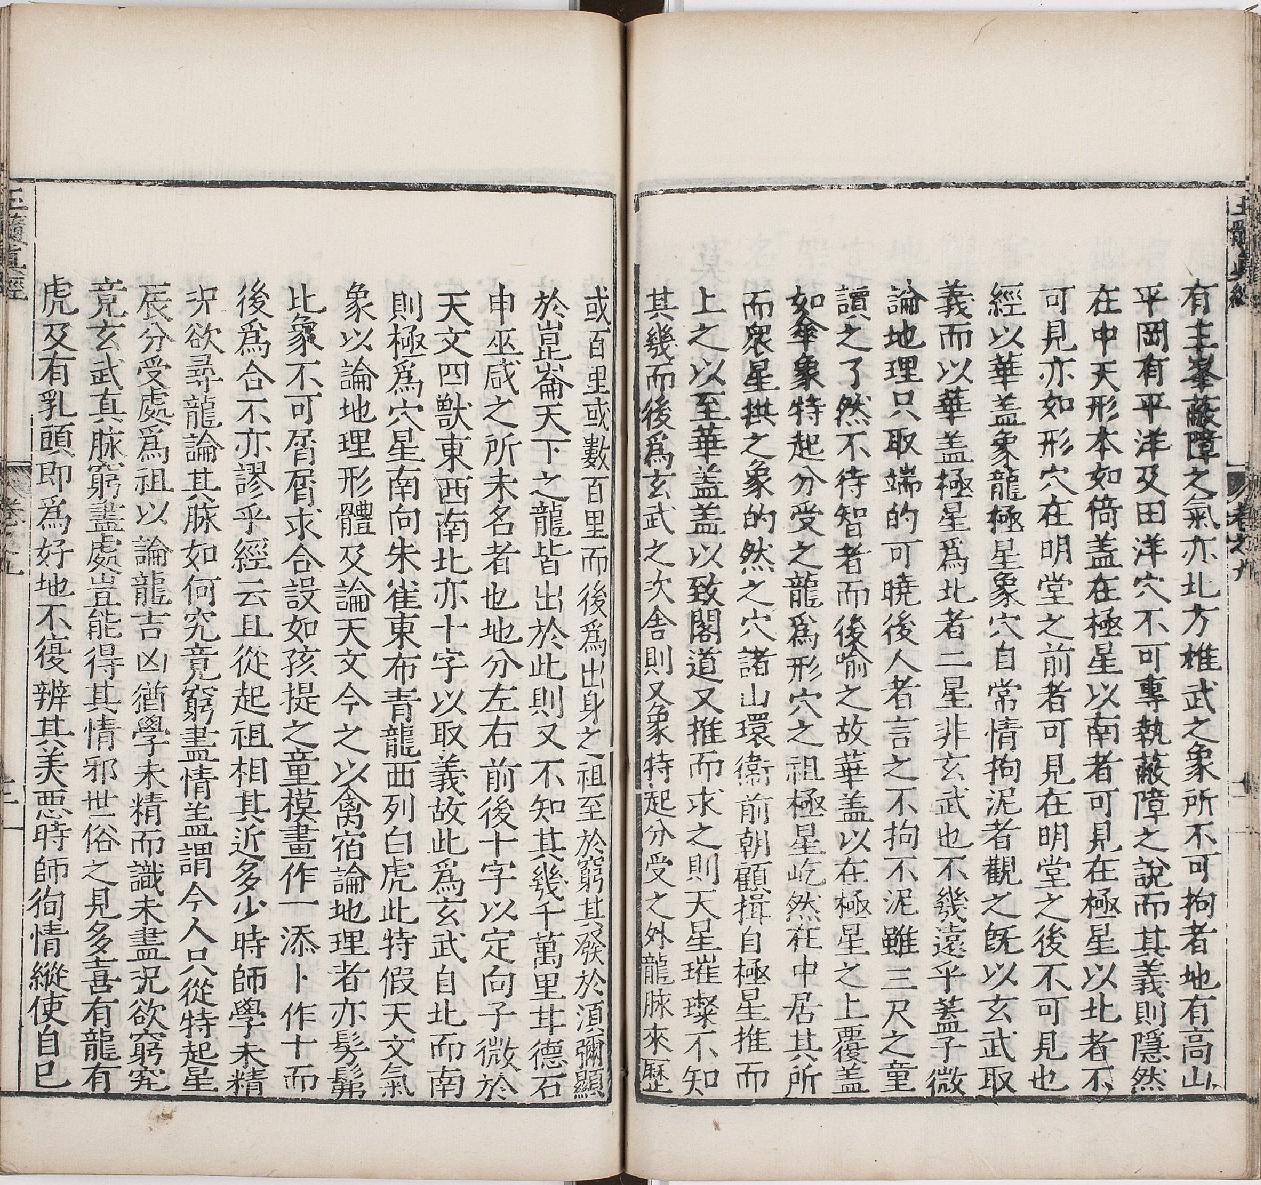 有主峯蔽障之氣亦北方惟武之象所不可拘者地有高山
平岡有平洋及田洋穴不可專執蔽障之說而其義則隱然
在中天形本如倚盖在極星以南者可見在極星以北者不
可見亦如形穴在明堂之前者可見在明堂之後不可見也
經以華盖象龍極星象穴自常情拘泥者觀之旣以玄武取
義而以華盖極星爲北者二星非玄武也不幾遠乎蓋子微
論地理只取端的可曉後人者言之不拘不泥雖三尺之童
讀之了然不待智者而後喻之故華盖以在極星之上覆盖
如傘象特起分受之龍爲形穴之祖極星屹然在中居其所
而衆星拱之象的然之穴諸山環衛前朝顧揖自極星推而
上之以至華盖盖以致閣道又推而求之則天星璀璨不知
其幾而後爲玄武之次舍則又象特起分受之外龍脉來歷
或百里或數百里而後爲出身之祖至於窮其發於湏彌顯
於崑崙天下之龍皆出於此則又不知其幾千萬里甘德石
申巫咸之所未名者也地分左右前後十字以定向子微於
天文四獸東西南北亦十字以取義故此爲玄武自北而南
則極爲穴星南向朱雀東布青龍西列白虎此特假天文氣
象以論地理形體及論天文今之以禽宿論地理者亦髣髴
比象不可屑屑求合設如孩提之童模畫作一添卜作十而
後爲合不亦謬乎經云且從起祖相其近多少時師學未精
只欲尋龍論其脉如何究竟窮盡情盖謂今人只從特起星
辰分受處爲祖以論龍吉凶猶學未精而識未盡況欲窮究
竟玄武真脉窮盡處豈能得其情邪世俗之見多喜有龍有
虎及有乳頭即爲好地不復辨其美惡時師徇情縱使自巳
玉髓真經
卷之五